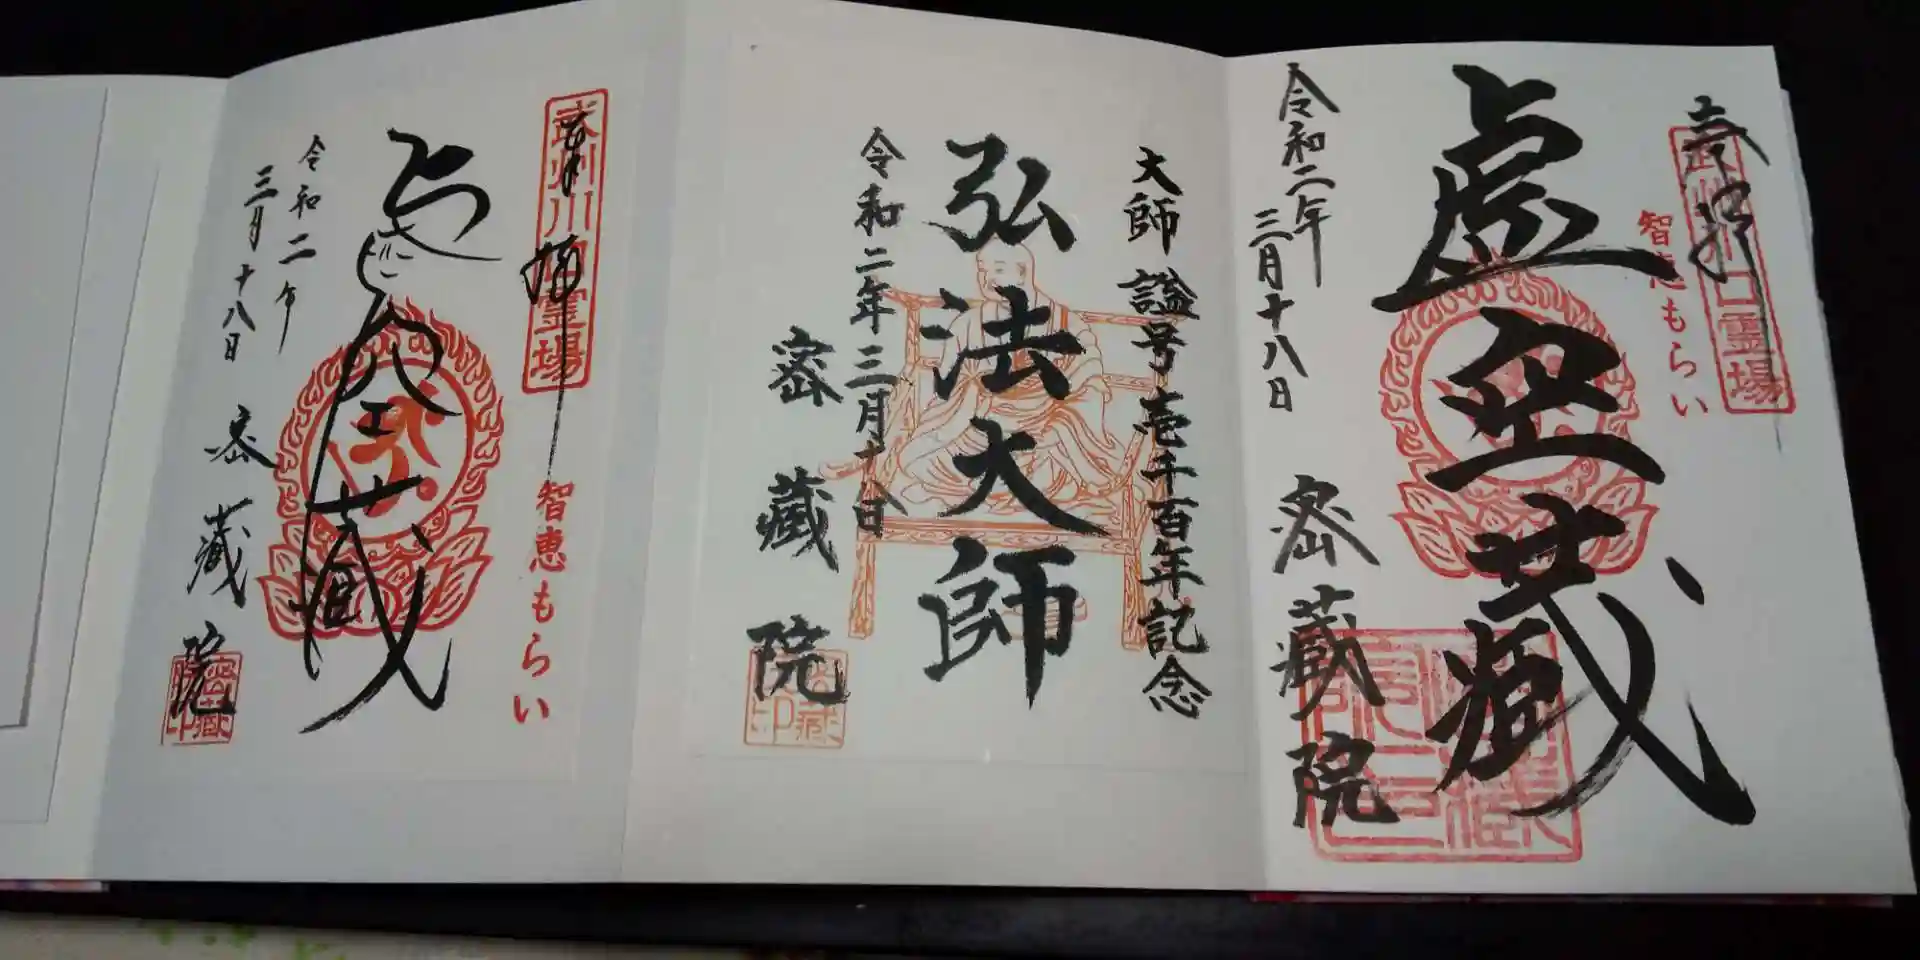 奉拝
武州川口霊場
智恵もらい
虚空蔵
令和二年
三月十八日
密蔵院
大師 諡号壱千百年記念
弘法大師
令和二年三月十八日
密蔵院
奉拝
武州川口霊場
智恵もらい
虚空蔵
令和二年
三月十八日
密蔵院